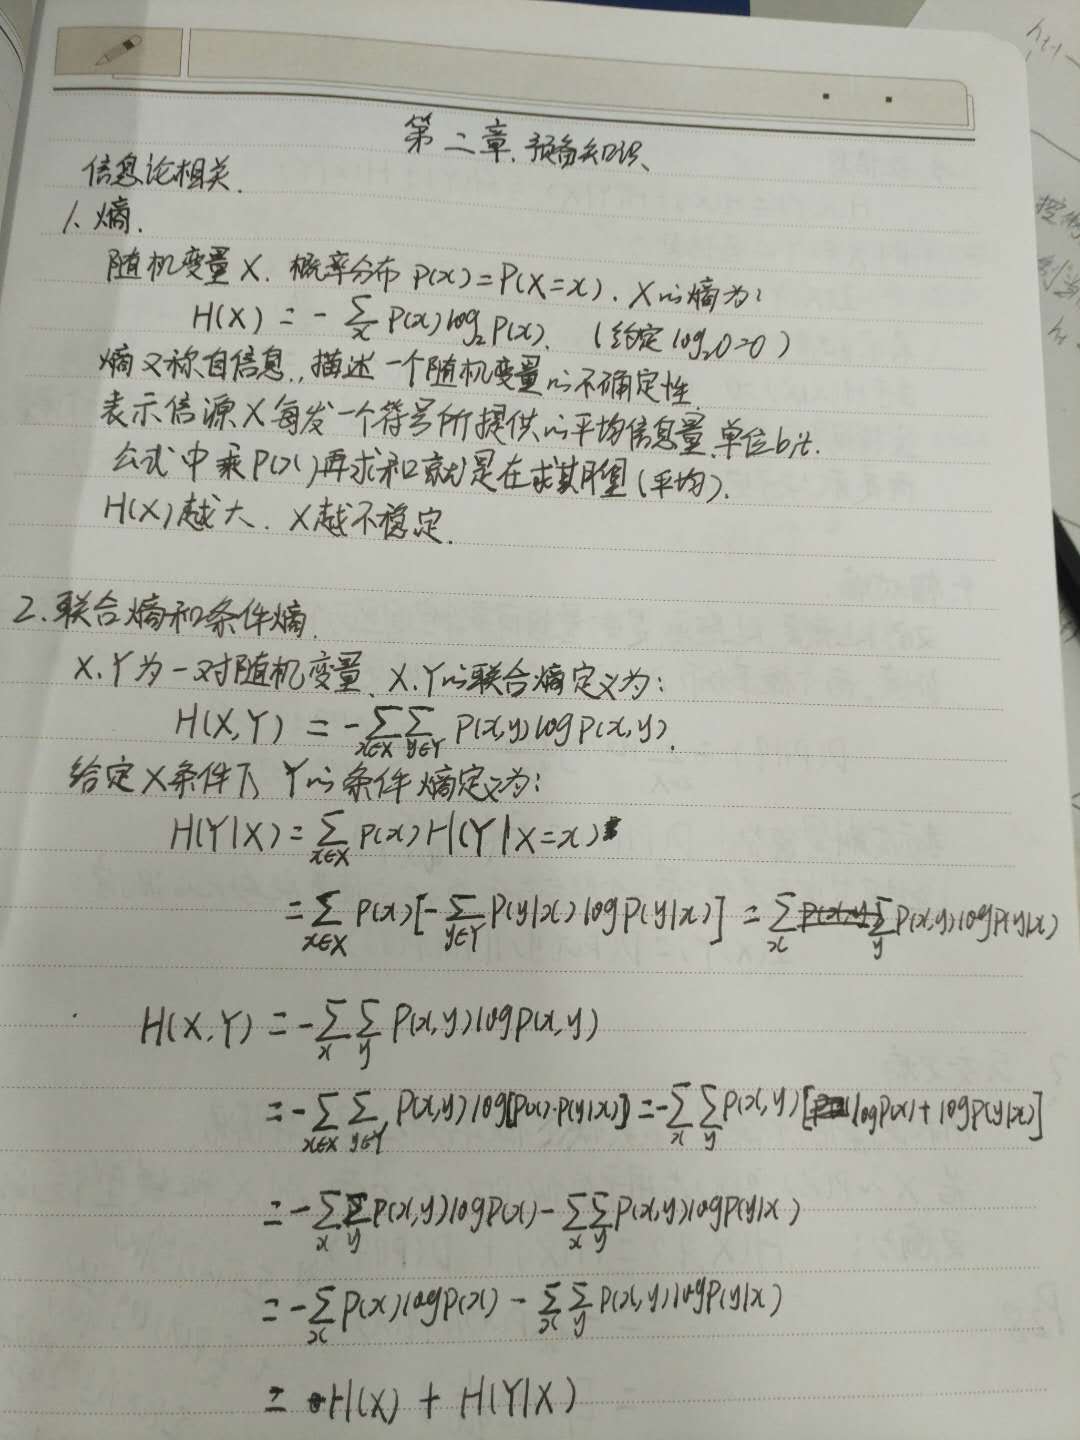 第二章、预备知识
信息论相关.
1、熵.
随机变量X. 概率分布 P(x)=P(X=x). X的熵为:
H(X) = - ∑x P(x)log₂P(x). (约定 log₂0=0)
熵又称自信息., 描述一个随机变量的不确定性.
表示信源X每发一个符号所提供的平均信息量.单位bit.
公式中乘P(x)再求和就是在求期望(平均).
H(X)越大. X越不稳定.
2.联合熵和条件熵.
X.Y为一对随机变量、X.Y的联合熵定义为:
H(X,Y) = -∑x∈X ∑y∈Y P(x,y)logP(x,y).
给定X条件下 Y的条件熵定义为:
H(Y|X) = ∑x∈X P(x)H(Y|X=x)
= ∑x∈X P(x)[-∑y∈Y P(y|x)logP(y|x)] = ∑x ∑y P(x,y)logP(y|x)
H(X.Y) = -∑x ∑y P(x,y)logP(x,y)
= -∑x∈X ∑y∈Y P(x,y)log[P(x)·P(y|x)] = -∑x ∑y P(x,y)[logP(x)+logP(y|x)]
= -∑x ∑y P(x,y)logP(x) - ∑x ∑y P(x,y)logP(y|x)
= -∑x P(x)logP(x) - ∑x ∑y P(x,y)logP(y|x)
= H(X) + H(Y|X)